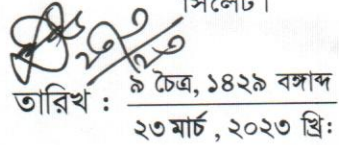 সিলেট।
তারিখ : ৯ চৈত্র, ১৪২৯ বঙ্গাব্দ
২৩ মার্চ , ২০২৩ খ্রি: